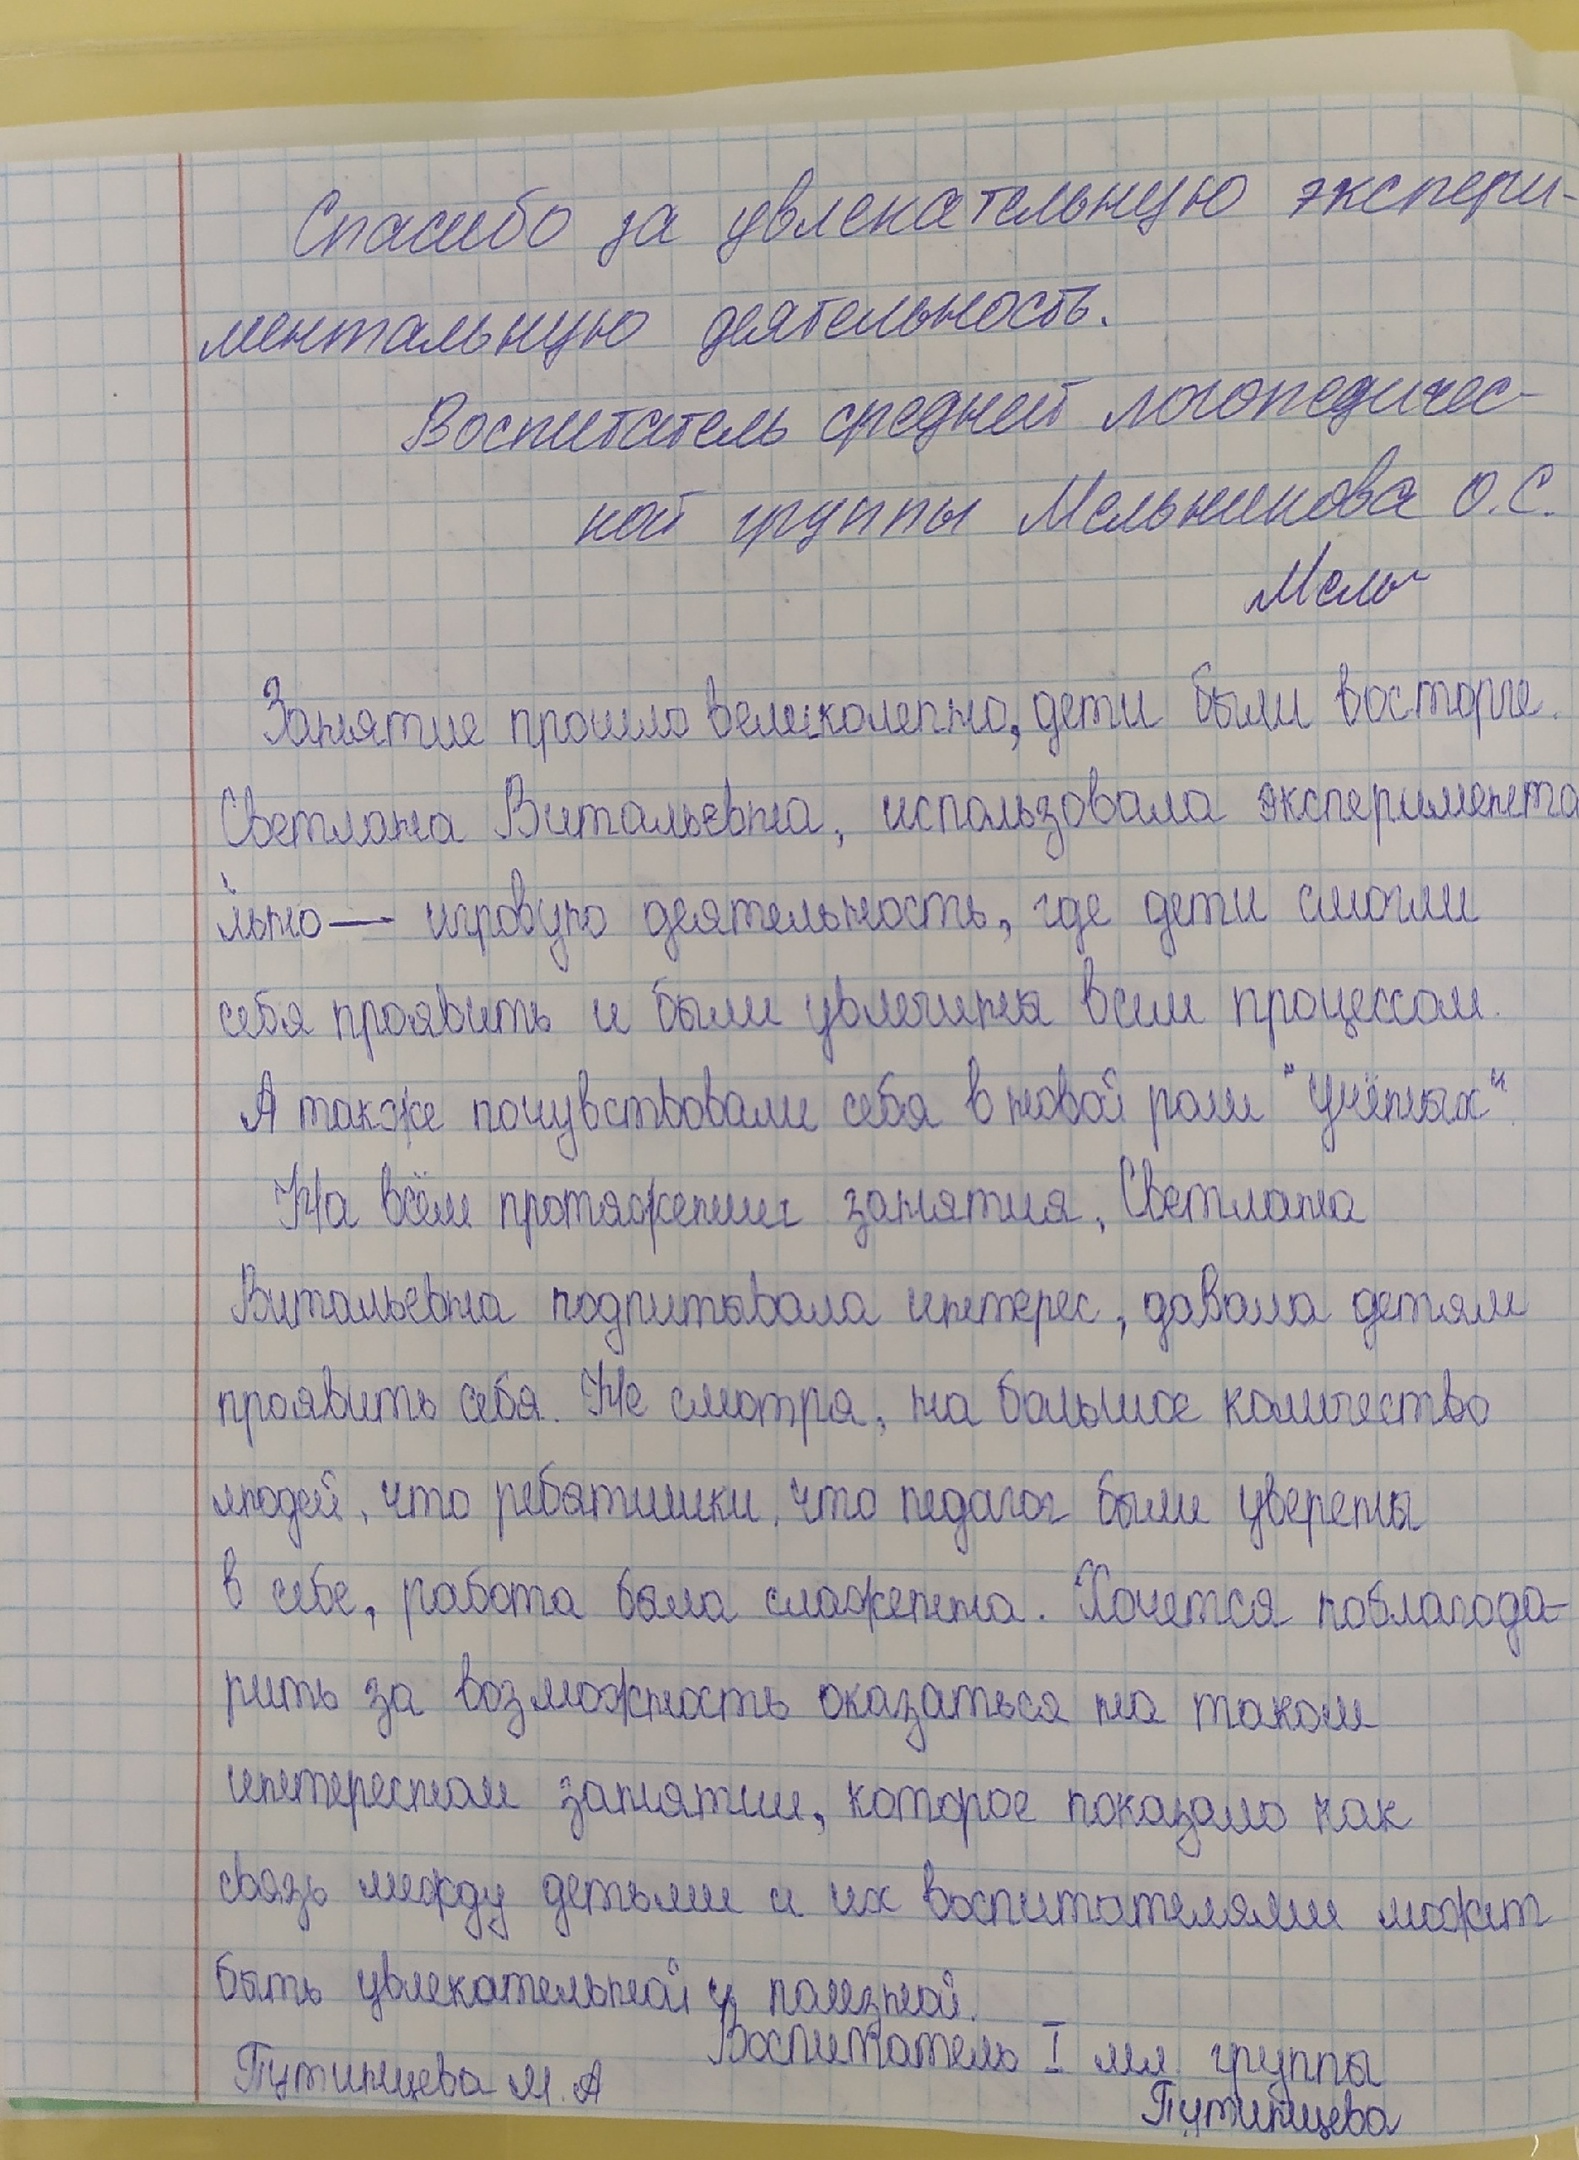 Спасибо за увлекательную экспери-
ментальную деятельность.
Воспитатель средней логопедичес-
кой группы Мельникова О.С.
Мель
Занятие прошло великолепно, дети были восторге.
Светлана Витальевна, использовала эксперимента
льно — игровую деятельность, где дети смогли
себя проявить и были увлечины всем процессом.
А также почувствовали себя в новой роли "учёных".
На всём протяжении занятия, Светлана
Витальевна подпитывала интерес, давала детям
проявить себя. Не смотря, на большое количество
людей, что ребятишки, что педагог были уверены
в себе, работа была слаженна. Хочется поблагода-
рить за возможность оказаться на таком
интересном занятии, которое показало как
связь между детьми и их воспитателями может
быть увлекательной и полезной.
Воспитатель I мл. группы
Путинцева М.А
Путинцева